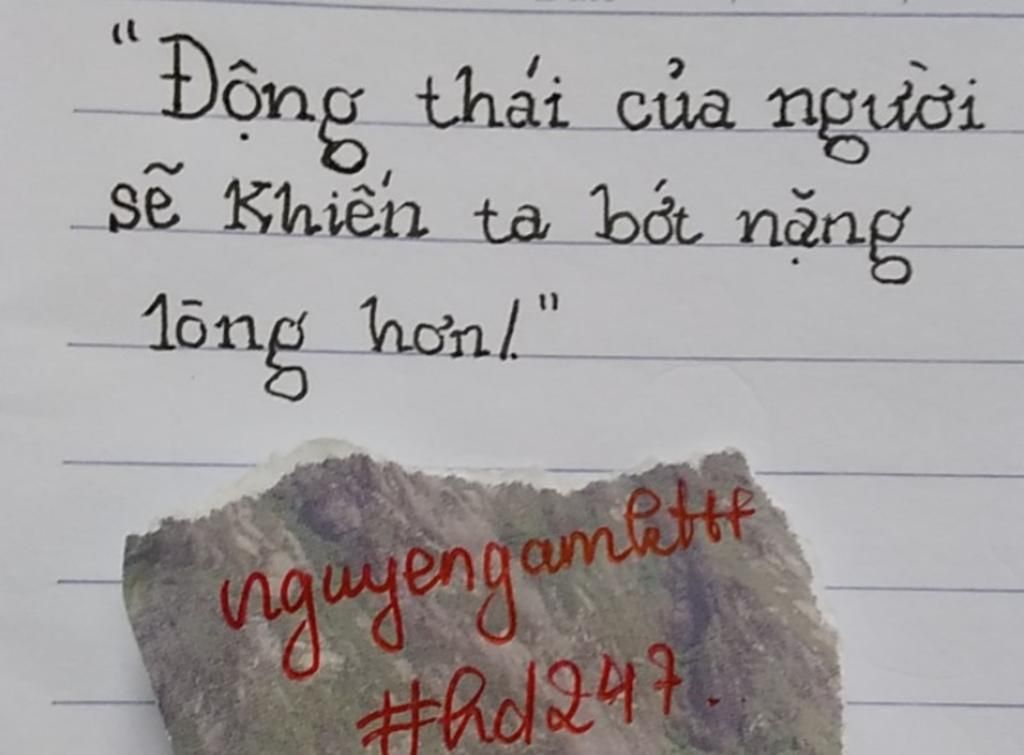 “Động thái của người
sẽ Khiến ta bớt nặng
lōng hơn!.”
nguyengamkttt
#hd247.